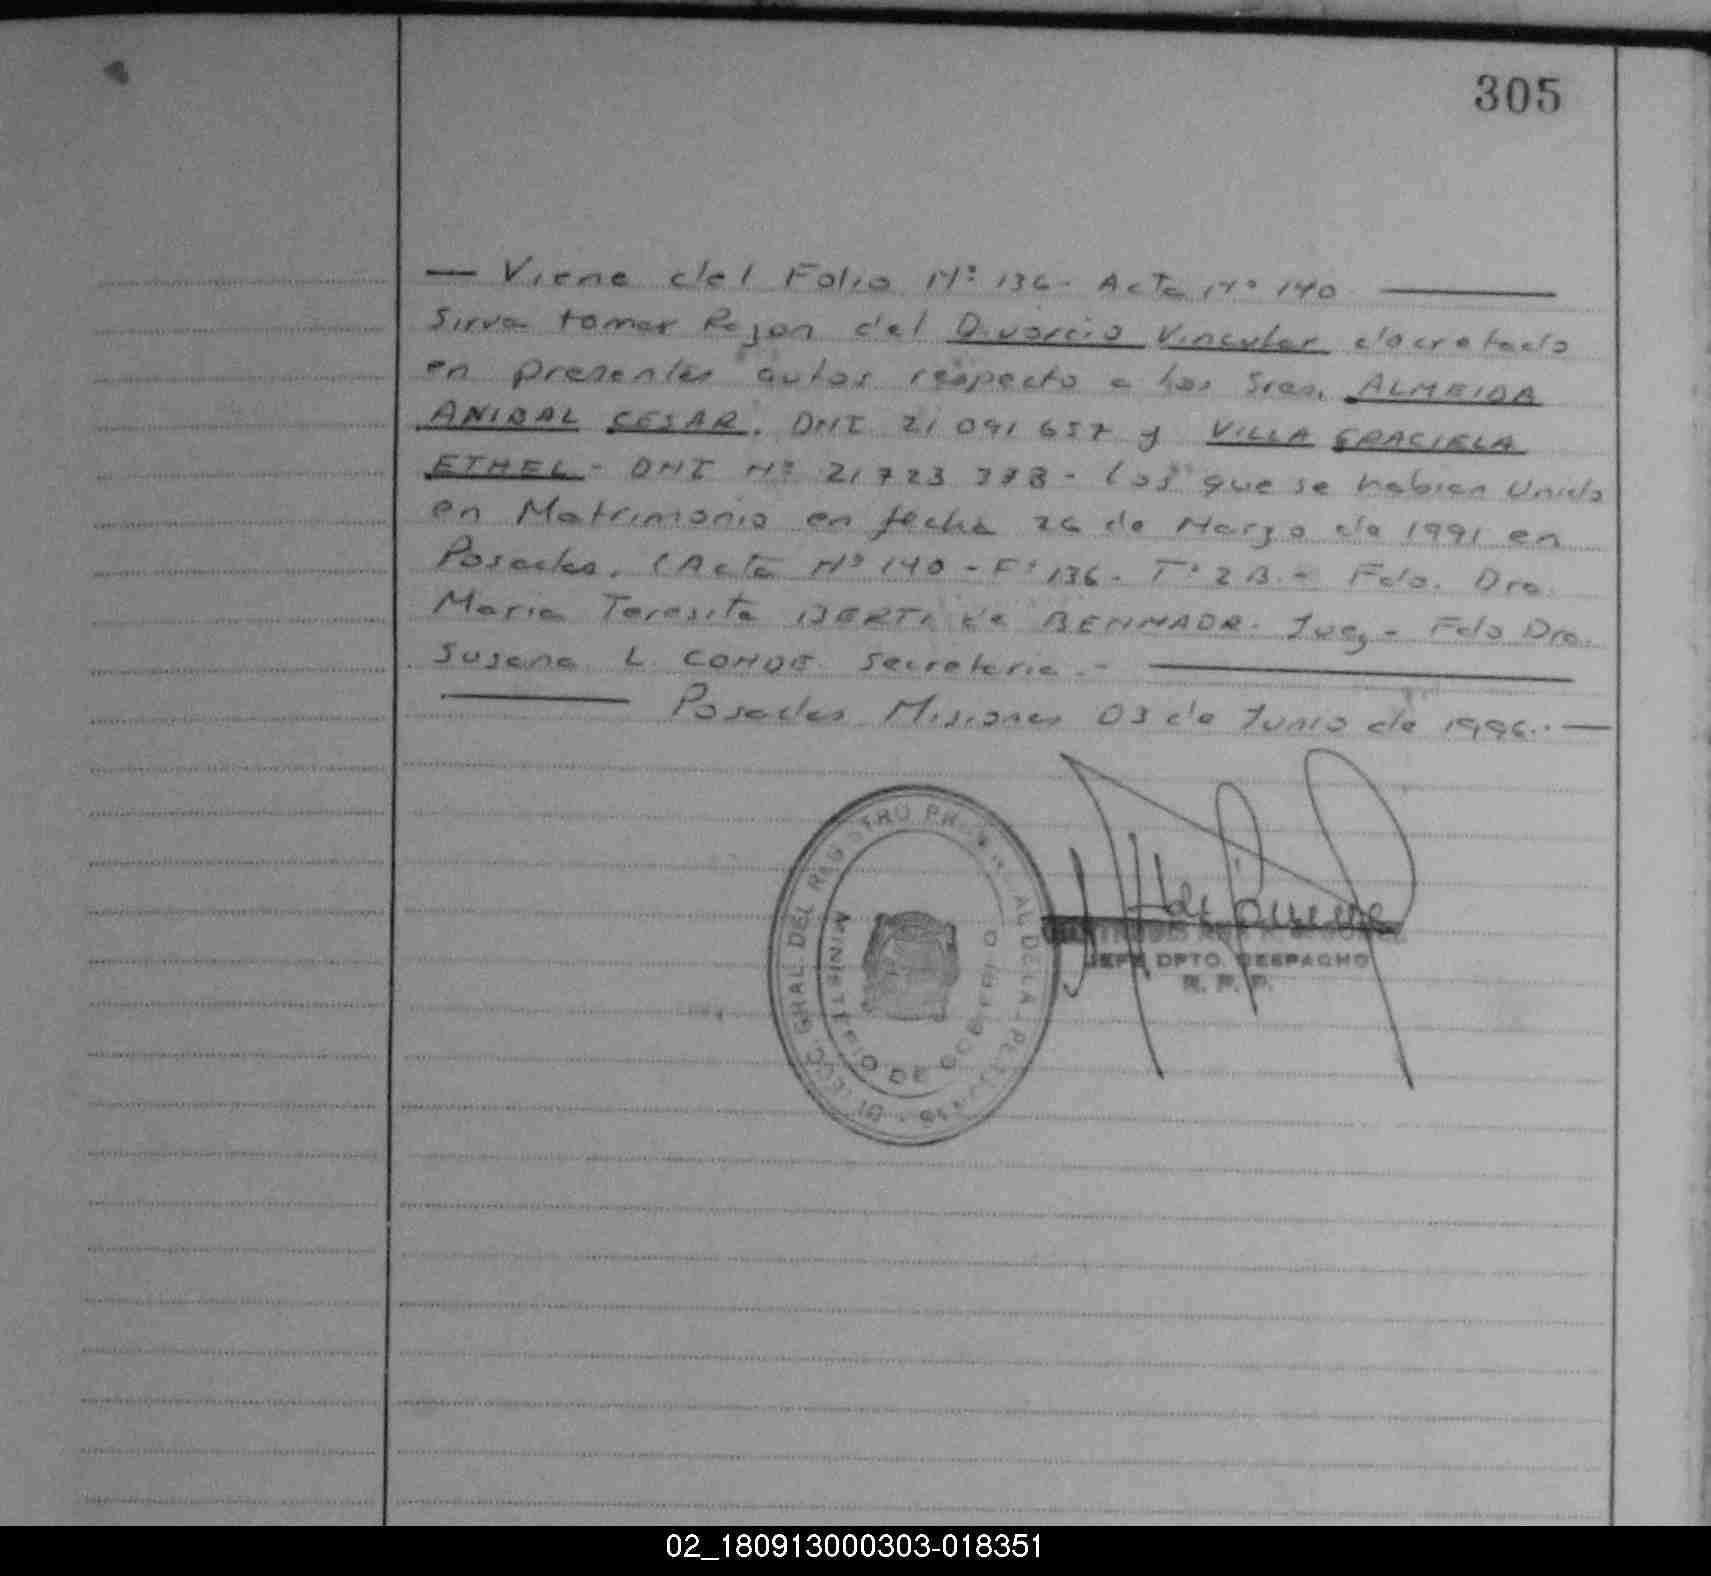 305
— Viene del Folio Nº 136 - Acta Nº 140 —
Sirva tomar Razon del Divorcio Vincular decretado
en presentes autos respecto a los Sres. ALMEIDA
ANIBAL CESAR. DNI 21 091 657 y VILLA GRACIELA
ETHEL - DNI Nº 21 723 378 - los que se habian Unido
en Matrimonio en fecha 26 de Marzo de 1991 en
Posadas. (Acta Nº 140 - Fº 136 - Tº 2 B. - Fdo. Dra.
Maria Teresita BERTI de BENMAOR. Juez - Fdo Dra.
Susana L. CONDE Secretaria. - —
— Posadas Misiones 03 de Junio de 1996.. —
GRAL. DEL REGISTRO PROVINCIAL DE LAS PERSONAS
MINISTERIO DE GOBIERNO
JEFE DPTO. DESPACHO
R. P. P.
02_180913000303-018351